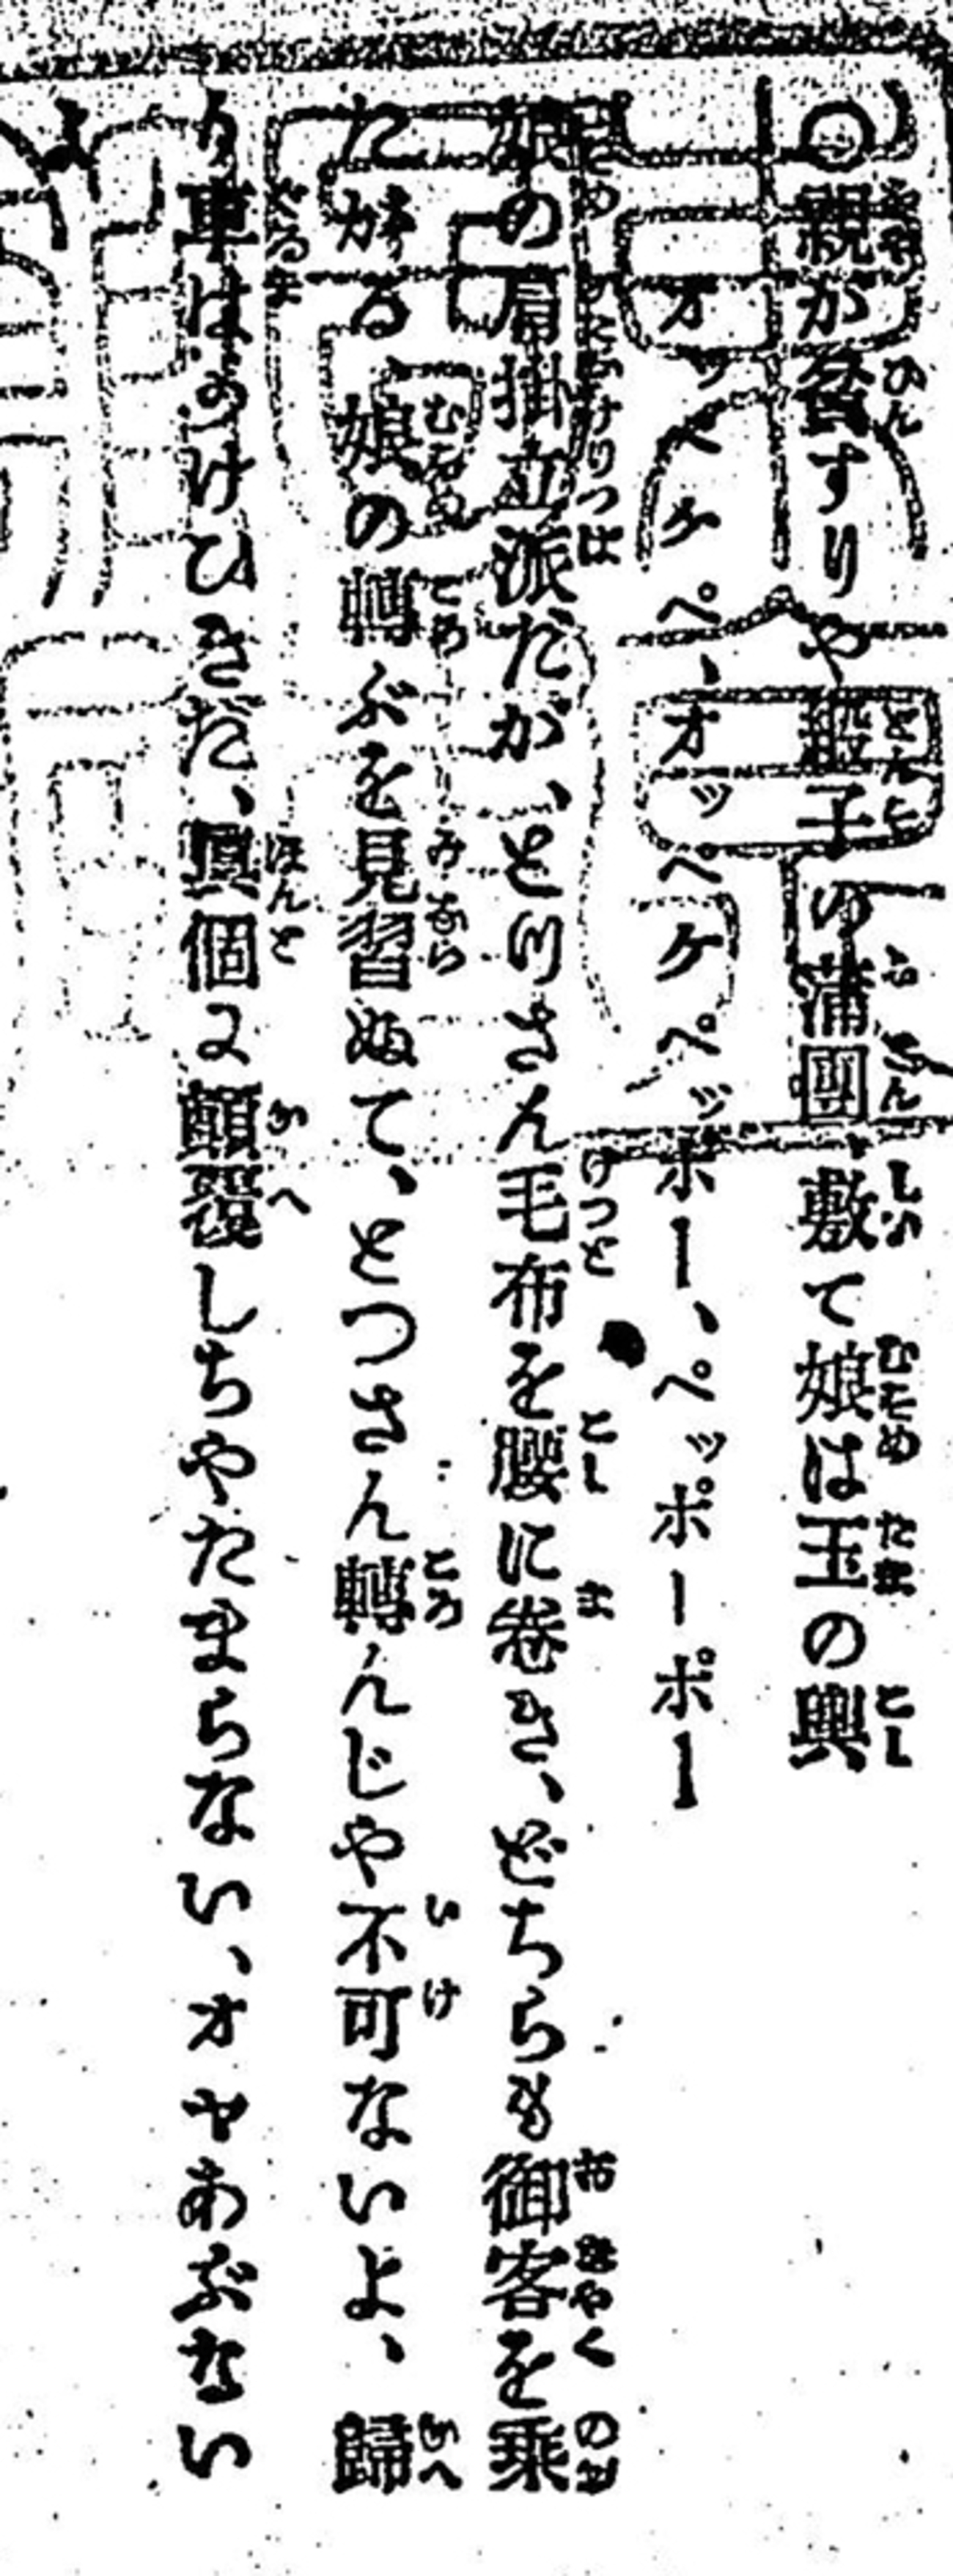 ○親が貧すりや緞子の蒲團、敷て娘は玉の輿
オッペケペ、オッペケペッポー、ペッポーポー
娘の肩掛立派だが、とつさん毛布を腰に卷き、どちらも御客を乘
たがる 娘の轉ぶを見習ぬて、とつさん轉んじや不可ないよ、歸
り車はあつけひきだ、眞個に顛覆しちやたまらない、オヤあぶない